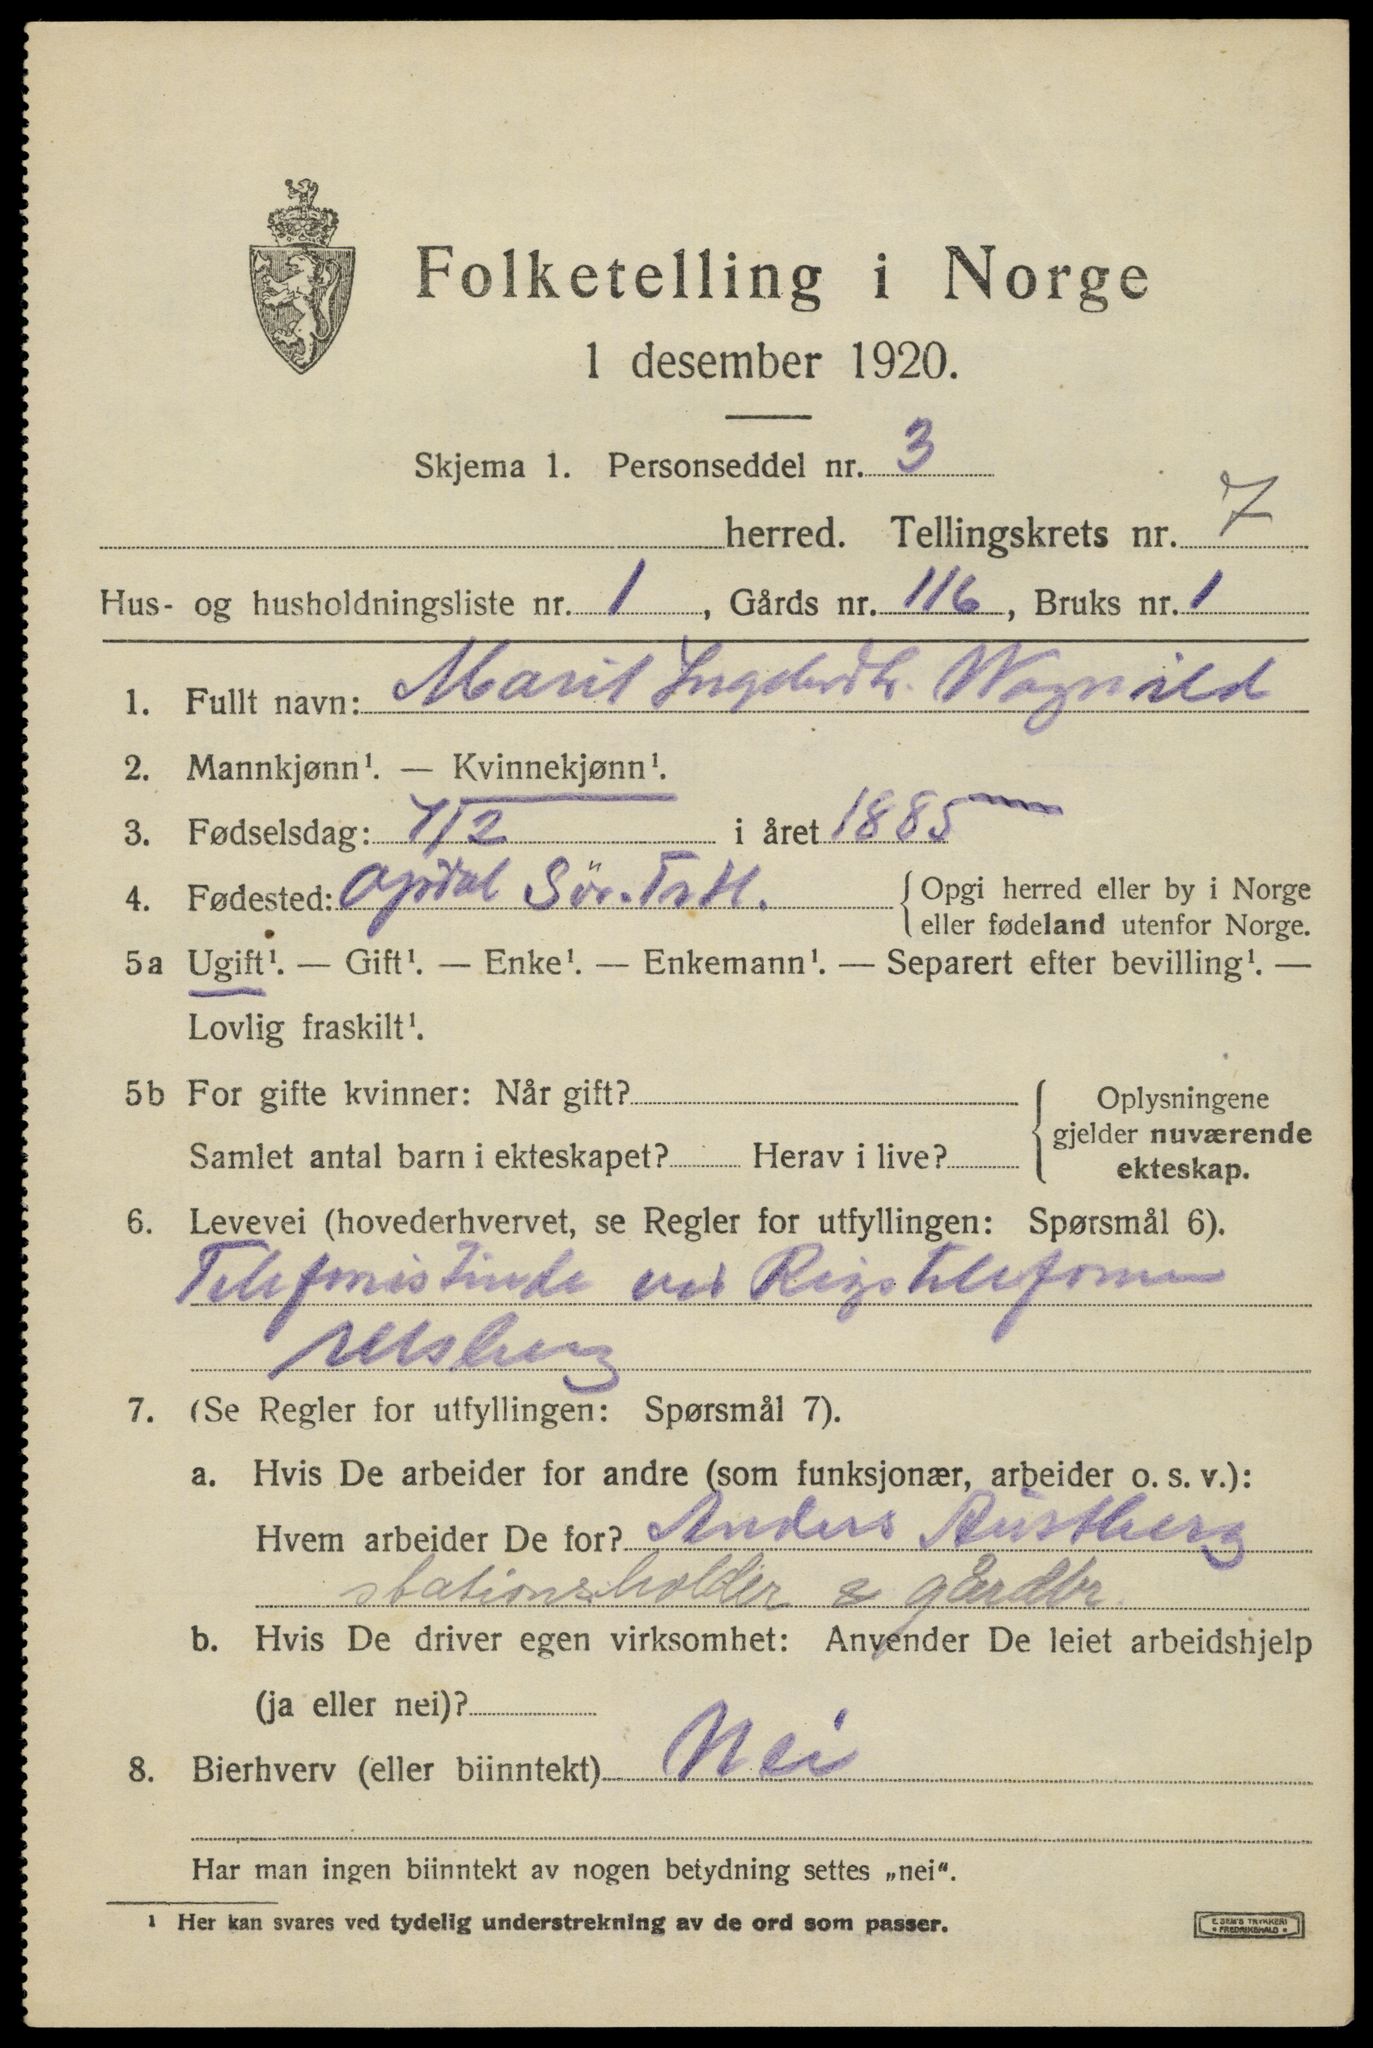 Folketelling i Norge
1 desember 1920.
Skjema 1. Personseddel nr. 3
herred. Tellingskrets nr. 7
Hus- og husholdningsliste nr. 1, Gårds nr. 116, Bruks nr. 1
1. Fullt navn: Marit Wognild
2. Mannkjønn¹. — Kvinnekjønn¹.
3. Fødselsdag: 7/2 i året 1885
4. Fødested: Opdal Sör. { Opgi herred eller by i Norge
eller fødeland utenfor Norge.
5a Ugift¹. — Gift¹. — Enke¹. — Enkemann¹. — Separert efter bevilling¹. —
Lovlig fraskilt¹.
5b For gifte kvinner: Når gift? { Oplysningene
gjelder nuværende
Samlet antal barn i ekteskapet? Herav i live?
ekteskap.
6. Levevei (hovederhvervet, se Regler for utfyllingen: Spørsmål 6).
Telefonistinde ved Rigstelefonen
7. (Se Regler for utfyllingen: Spørsmål 7).
a. Hvis De arbeider for andre (som funksjonær, arbeider o. s. v.):
Hvem arbeider De for? Anders Austberg
stationsholder & gårdbr.
b. Hvis De driver egen virksomhet: Anvender De leiet arbeidshjelp
(ja eller nei)?
8. Bierhverv (eller biinntekt) Nei
Har man ingen biinntekt av nogen betydning settes „nei“.
¹ Her kan svares ved tydelig understrekning av de ord som passer.
E. SEM'S TRYKKERI
FREDRIKSHALD